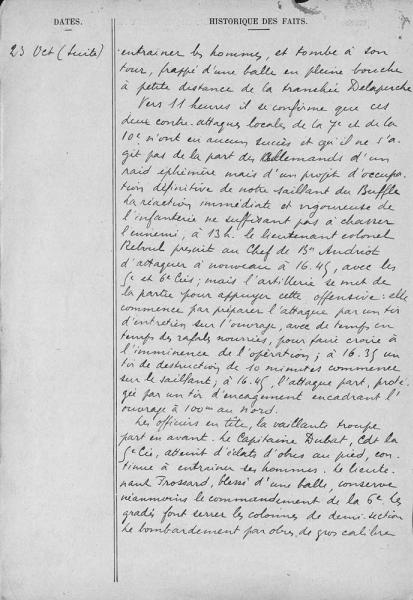 DATES.
HISTORIQUE DES FAITS.
23 Oct (suite)
entraîner les hommes, et tombe à son
tour, frappé d'une balle en pleine bouche
à petite distance de la tranchée Delaperche
Vers 11 heures il se confirme que ces
deux contre-attaques locales de la 7e et de la
10e n'ont eu aucun succès et qu'il ne s'a-
git pas de la part des Allemands d'un
raid éphémère mais d'un projet d'occupa-
tion définitive de notre saillant du Buffle
La réaction immédiate et vigoureuse de
l'infanterie ne suffisant pas à chasser
l'ennemi, à 13h. le lieutenant colonel
Reboul prescrit au Chef de Bon Andriot
d'attaquer à nouveau à 16.45, avec les
5e et 6e Cies; mais l'artillerie se met de
la partie pour appuyer cette offensive: elle
commence par préparer l'attaque par un tir
d'entretien sur l'ouvrage, avec de temps en
temps des rafales nourries, pour faire croire à
l'imminence de l'opération; à 16.35 un
tir de destruction de 10 minutes commence
sur le saillant; à 16.45, l'attaque part, proté-
gée par un tir d'encagement encadrant l'
ouvrage à 100m au nord.
Les officiers en tête, la vaillante troupe
part en avant. Le Capitaine Dubat, Cdt la
5e Cie, atteint d'éclats d'obus au pied, con-
tinue à entraîner ses hommes. Le lieute-
nant Trossard, blessé d'une balle, conserve
néanmoins le commandement de la 6e. Les
gradés font serrer les colonnes de demi-section
Le bombardement par obus de gros calibre